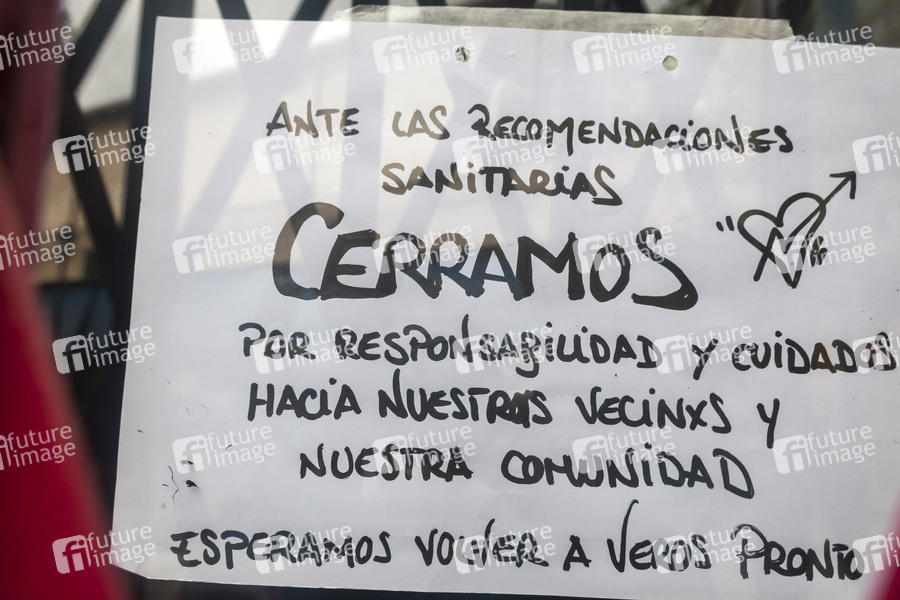 ANTE LAS RECOMENDACIONES
SANITARIAS
CERRAMOS
POR RESPONSABILIDAD Y CUIDADOS
HACIA NUESTRXS VECINXS Y
NUESTRA COMUNIDAD
ESPERAMOS VOLVER A VERNOS PRONTO
future image